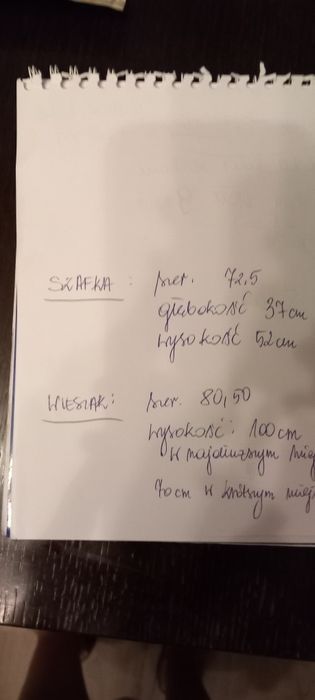 SZAFKA: szer. 72,5
głębokość 37cm
wysokość 52cm
WIESZAK: szer. 80,50
wysokość: 100cm
w najdłuższym miej
70cm w krótszym miej